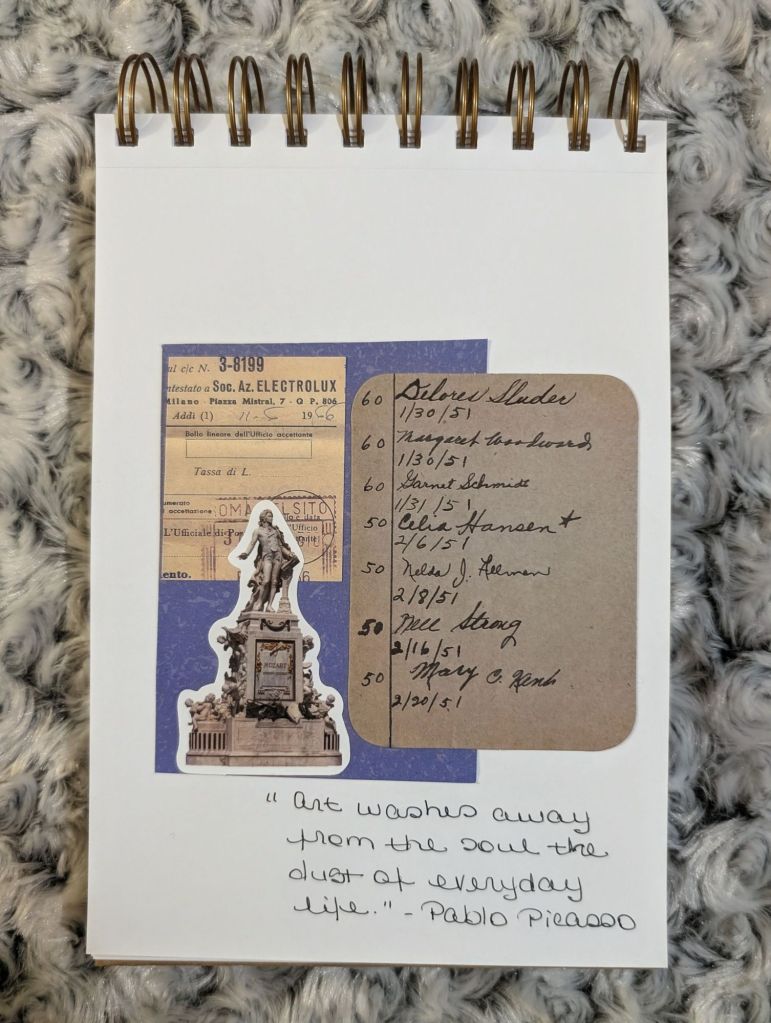 ul c/c N. 3-8199
ntestato a Soc. Az. ELECTROLUX
Milano - Piazza Mistral, 7 - Q P. 806
Addi (1) 11-5 1966
Bollo lineare dell'Ufficio accettante
Tassa di L.
umerato
accettazione
OMA OLSITO
e data
Ufficio
L'Ufficiale di Po
ento.
MOZART
60 Delores Sluder
1/30/51
60 Margaret Woodward
1/30/51
60 Garnet Schmidt
1/31/51
50 Celia Hansen
2/6/51
50 Nelda J.
2/8/51
50 Nell Strong
2/16/51
50 Mary C.
2/20/51
"Art washes away
from the soul the
dust of everyday
life." - Pablo Picasso